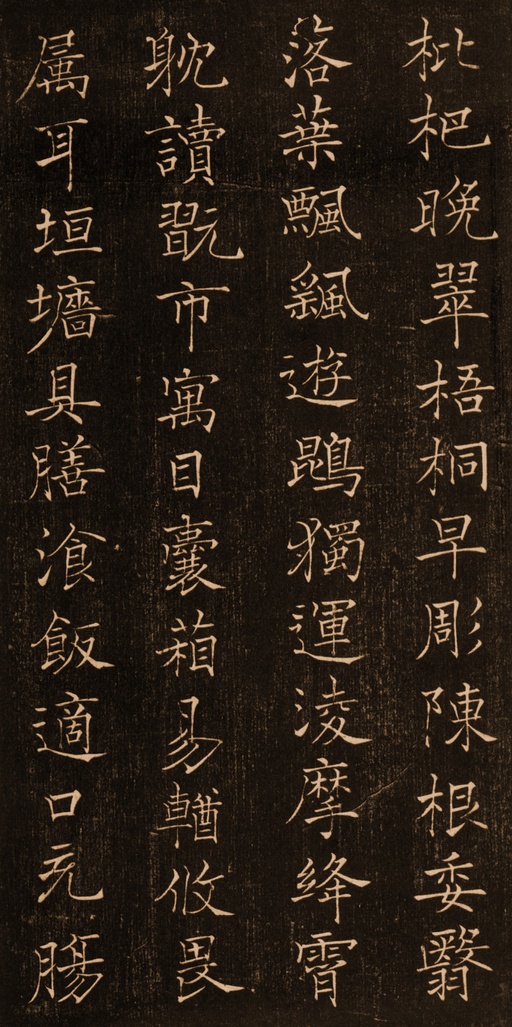 枇杷晚翠梧桐早彫陳根委翳
落葉飄颻遊鵾獨運淩摩絳霄
躭讀翫市寓目囊葙易輶攸畏
属耳垣墻具膳飡飯適口充膓